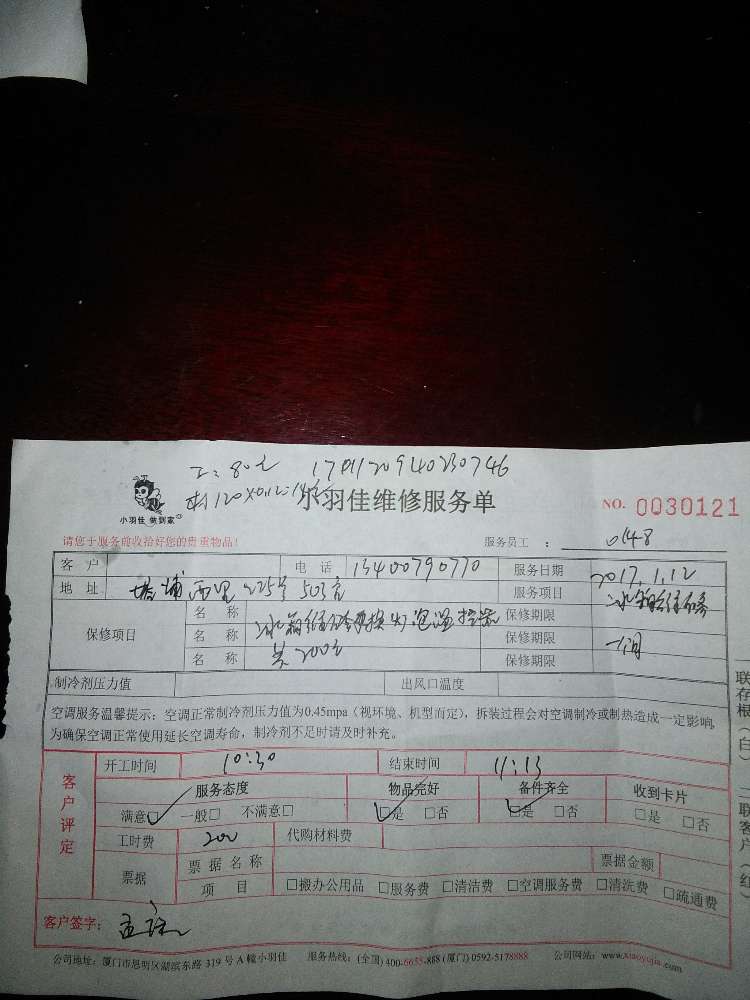 工：80元 1701120940230746
材120X0.12=14.4
小羽佳维修服务单
小羽佳 做到家
NO. 0030121
请您于服务前收拾好您的贵重物品！
服务员工 ： 048
客 户 电 话 13400790770 服务日期 2017.1.12
地 址 塔埔西里225号503室 服务项目 冰箱维修
保修项目
名 称 冰箱维修更换灯泡温控器 保修期限
名 称 保修期限 一个月
名 称 共200元 保修期限
制冷剂压力值 出风口温度
空调服务温馨提示：空调正常制冷剂压力值为0.45mpa（视环境、机型而定），拆装过程会对空调制冷或制热造成一定影响，
为确保空调正常使用延长空调寿命，制冷剂不足时请及时补充。
客户评定
开工时间 10:30 结束时间 11:13
服务态度 物品完好 备件齐全 收到卡片
满意□ 一般□ 不满意□ □是 □否 □是 □否 □是 □否
工时费 200 代购材料费
票据 票据名称 票据金额
项 目 □搬办公用品 □服务费 □清洁费 □空调服务费 □清洗费 □疏通费
客户签字：
公司地址：厦门市思明区湖滨东路 319 号 A 幢小羽佳 服务热线：(全国) 400-6655-888 (厦门) 0592-5178888 公司网站：www.xiaoyujia.com
联存根（白） 二联客户（红）